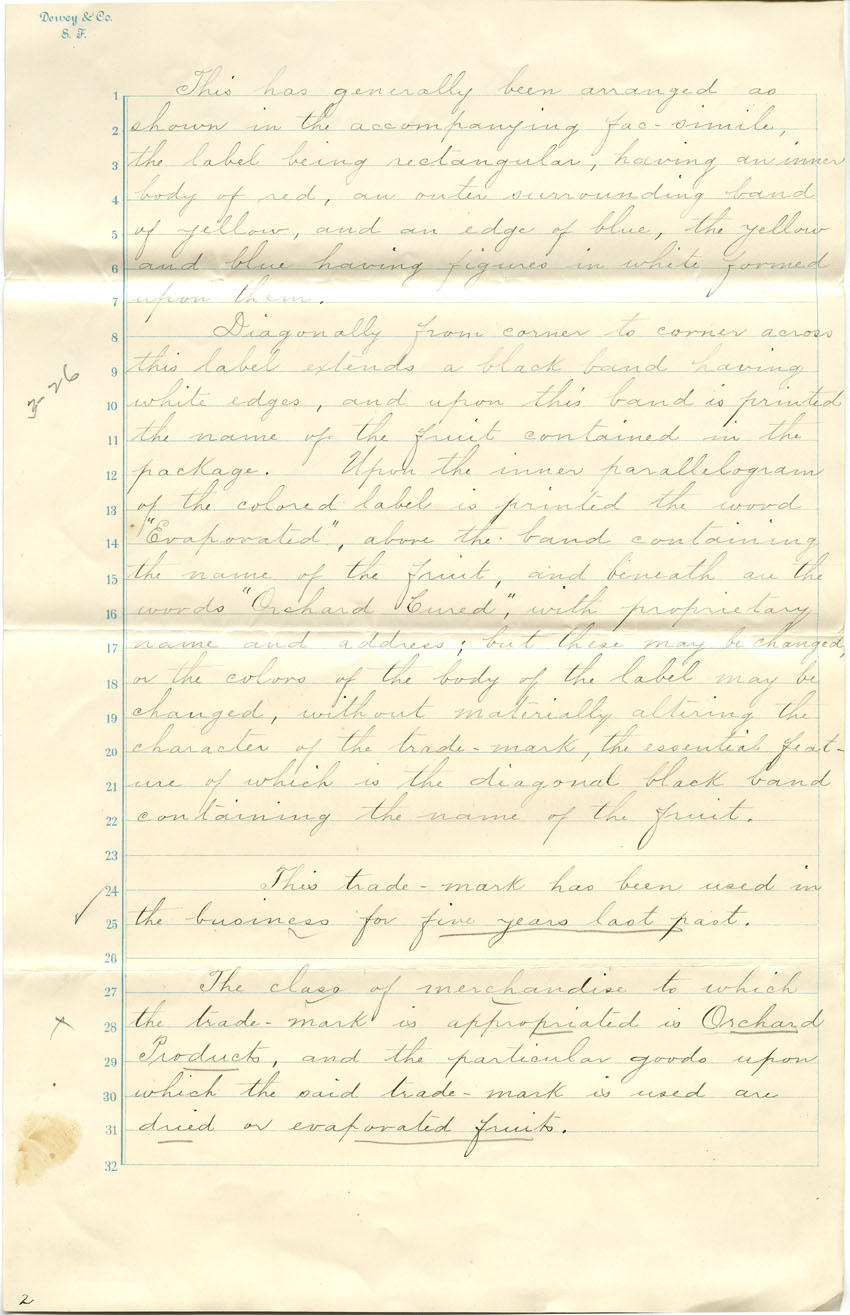 Dewey & Co.
S. F.
1 This has generally been arranged as
2 shown in the accompanying fac-simile,
3 the label being rectangular, having an inner
4 body of red, an outer surrounding band
5 of yellow, and an edge of blue, the yellow
6 and blue having figures in white formed
7 upon them.
8 Diagonally from corner to corner across
9 this label extends a black band having
3-26
10 white edges, and upon this band is printed
11 the name of the fruit contained in the
12 package. Upon the inner parallelogram
13 of the colored label is printed the word
14 "Evaporated", above the band containing
15 the name of the fruit, and beneath are the
16 words "Orchard Cured", with proprietary
17 name and address; but these may be changed,
18 or the colors of the body of the label may be
19 changed, without materially altering the
20 character of the trade-mark, the essential feat-
21 ure of which is the diagonal black band
22 containing the name of the fruit.
23
24 This trade-mark has been used in
25 the business for five years last past.
26
27 The class of merchandise to which
28 the trade-mark is appropriated is Orchard
29 Products, and the particular goods upon
30 which the said trade-mark is used are
31 dried or evaporated fruits.
32
2